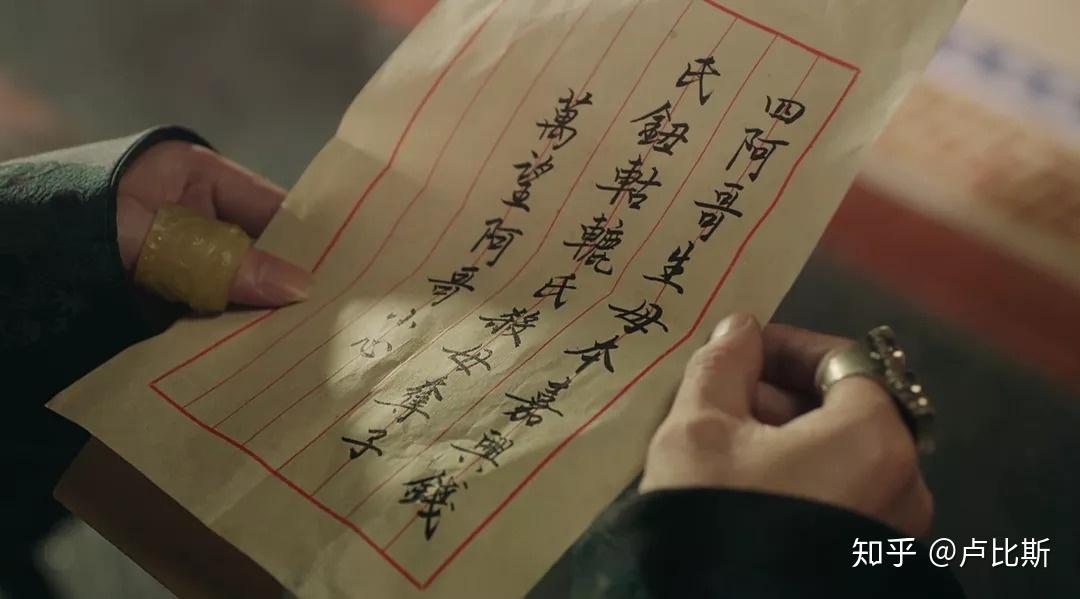 四阿哥生母本嘉興錢
氏鈕軲轆氏殺母奪子
萬望阿哥小心
知乎 @卢比斯